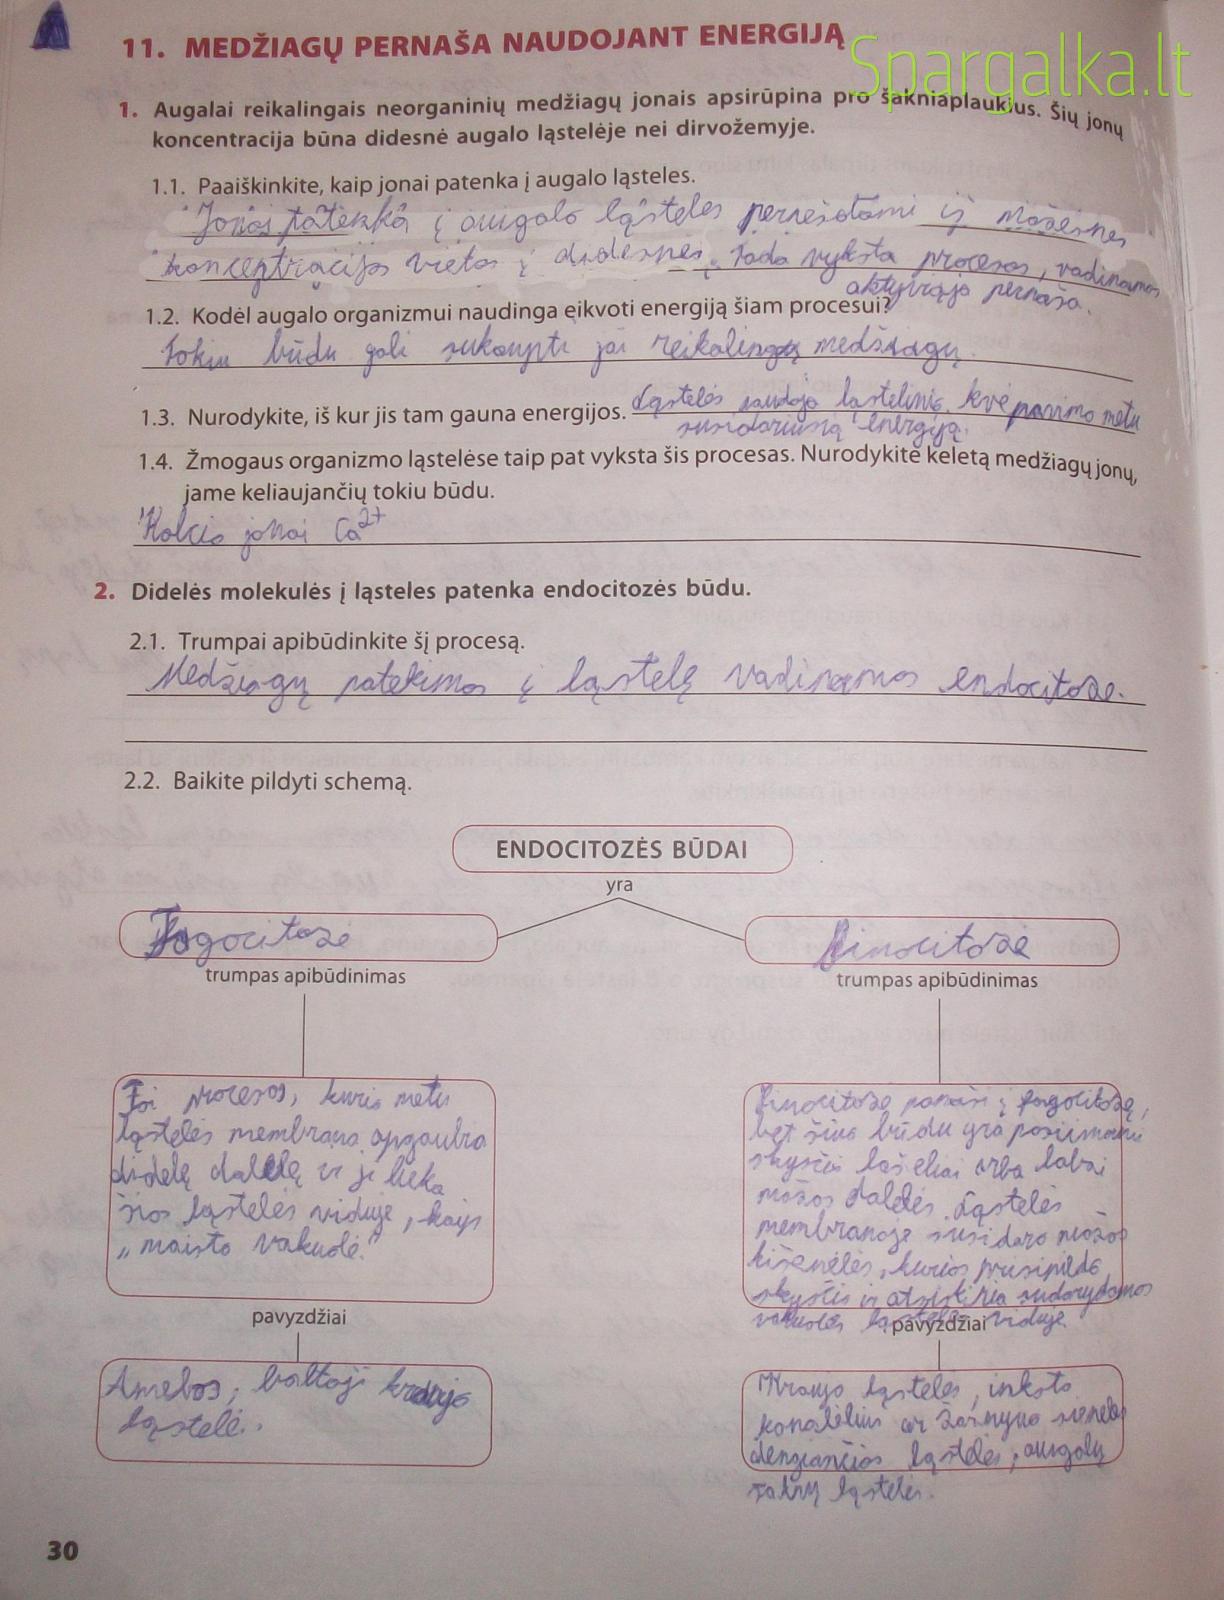 Spargalka.lt
11. MEDŽIAGŲ PERNAŠA NAUDOJANT ENERGIJĄ
1. Augalai reikalingais neorganinių medžiagų jonais apsirūpina pro šakniaplaukius. Šių jonų
koncentracija būna didesnė augalo ląstelėje nei dirvožemyje.
1.1. Paaiškinkite, kaip jonai patenka į augalo ląsteles.
Jonai patenka į augalo ląsteles pernešdami iš mažesnės
koncentracijos vietos į didesnės. Tada vyksta procesas, vadinamas
aktyviąja pernaša.
1.2. Kodėl augalo organizmui naudinga eikvoti energiją šiam procesui?
Tokiu būdu gali sukaupti jai reikalingų medžiagų.
1.3. Nurodykite, iš kur jis tam gauna energijos. Ląstelės naudoja ląstelinio kvėpavimo metu
susidariusią energiją.
1.4. Žmogaus organizmo ląstelėse taip pat vyksta šis procesas. Nurodykite keletą medžiagų jonų,
jame keliaujančių tokiu būdu.
Kalcio jonai Ca²⁺
2. Didelės molekulės į ląsteles patenka endocitozės būdu.
2.1. Trumpai apibūdinkite šį procesą.
Medžiagų patekimas į ląstelę vadinamas endocitoze.
2.2. Baikite pildyti schemą.
ENDOCITOZĖS BŪDAI
yra
Fagocitozė
Pinocitozė
trumpas apibūdinimas
trumpas apibūdinimas
Tai procesas, kurio metu
ląstelės membrana apgaubia
didelę dalelę ir ji lieka
šios ląstelės viduje, kaip
„maisto vakuolė."
Pinocitozė panaši į fagocitozę,
bet šiuo būdu yra pasiimami
skysčio lašeliai arba labai
mažos dalelės. Ląstelės
membranoje susidaro mažos
kišenėlės, kurios prisipildo
skysčio ir atsiskiria sudarydamos
vakuoles ląstelės viduje
pavyzdžiai
pavyzdžiai
Amebos, baltoji kraujo
ląstelė.
Kraujo ląstelės, inksto
kanalėlius ar žarnyno sieneles
dengiančios ląstelės, augalų
šaknų ląstelės.
30